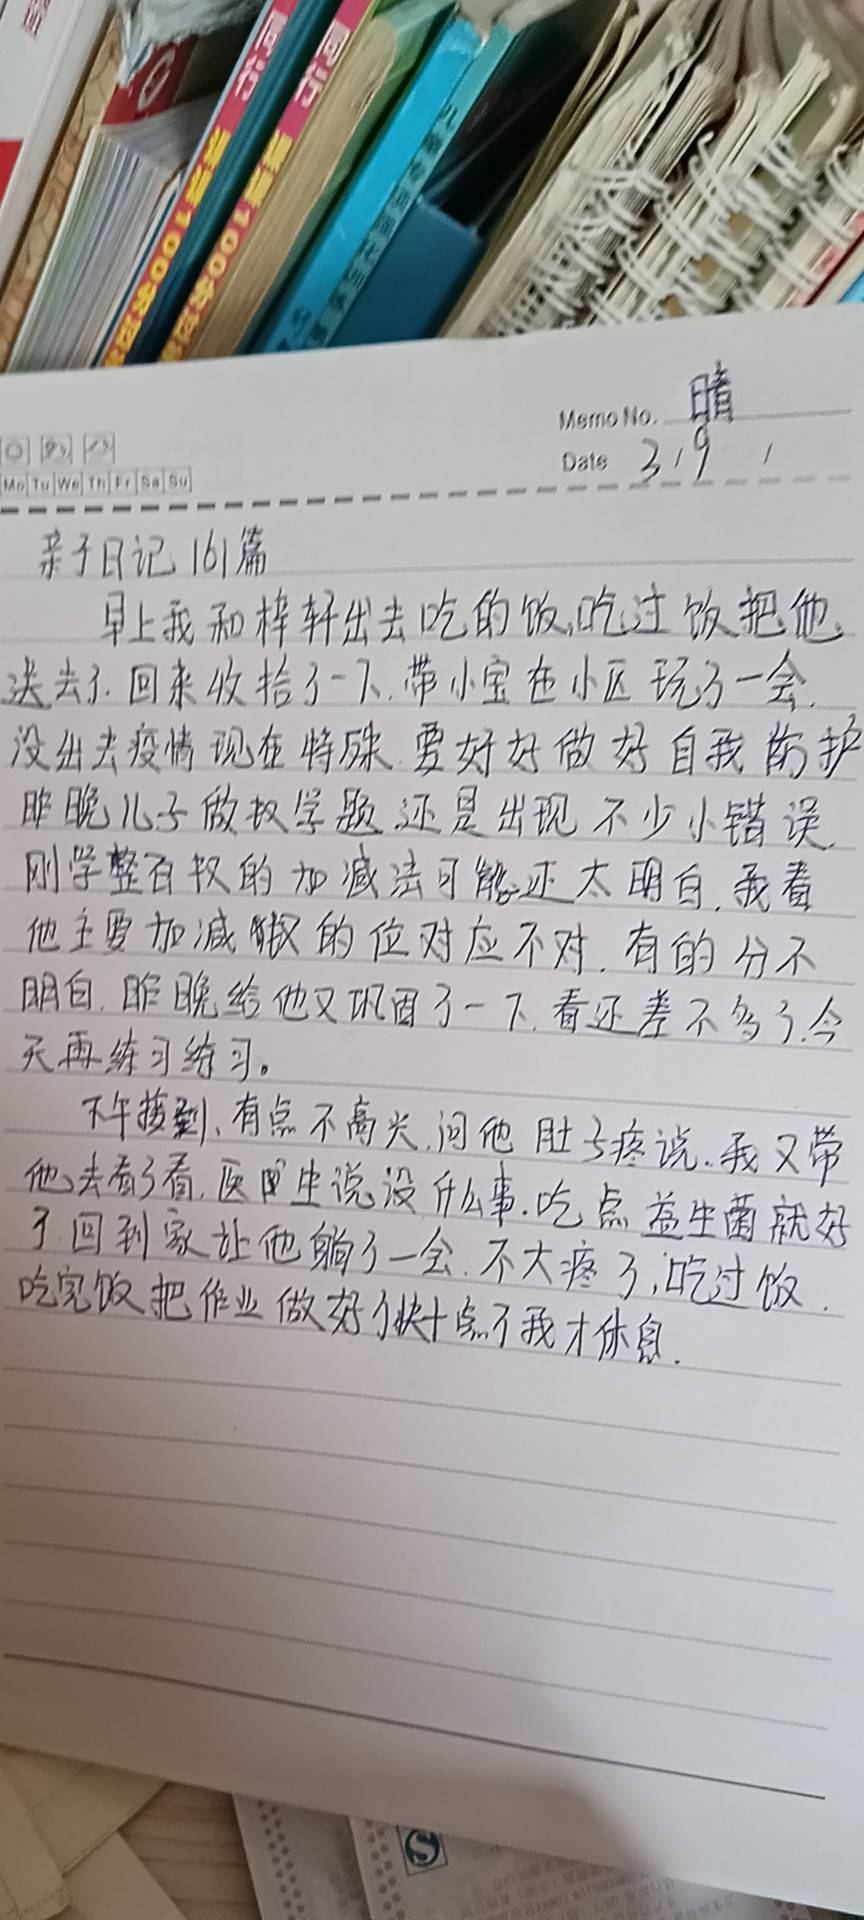 同行
同行
Memo No. 晴
Date 3/9 /
Mo Tu We Th Fr Sa Su
亲子日记161篇
早上我和梓轩出去吃的饭,吃过饭把他
送去了.回来收拾了一下.带小宝在小区玩了一会.
没出去疫情现在特殊.要好好做好自我防护
昨晚儿子做数学题还是出现不少小错误.
刚学整百数的加减法可能还太明白.我看
他主要加减数的位对应不对.有的分不
明白.昨晚给他又巩固了一下.看还差不多了.今
天再练习练习。
下午接到、有点不高兴.问他肚子疼说.我又带
他去看了看.医生说没什么事.吃点益生菌就好
了.回到家让他躺了一会.不大疼了,吃过饭.
吃完饭把作业做好了快十点了我才休息.